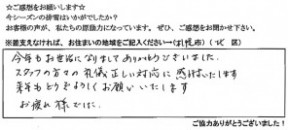 ☆ご感想をお願いします☆
今シーズンの排雪はいかがでしたか?
お客様の声が、私たちの原動力になっています。ぜひ、ご感想をお聞かせ下さい。
※差支えなければ、お住まいの地域をご記入ください(札幌市)( 区)
今年もお世話になりましてありがとうございました。
スタッフの方々の礼儀正しい対応に感謝いたします
来年もどうぞよろしくお願いいたします
お疲れ様でした。
ご協力ありがとうございました!